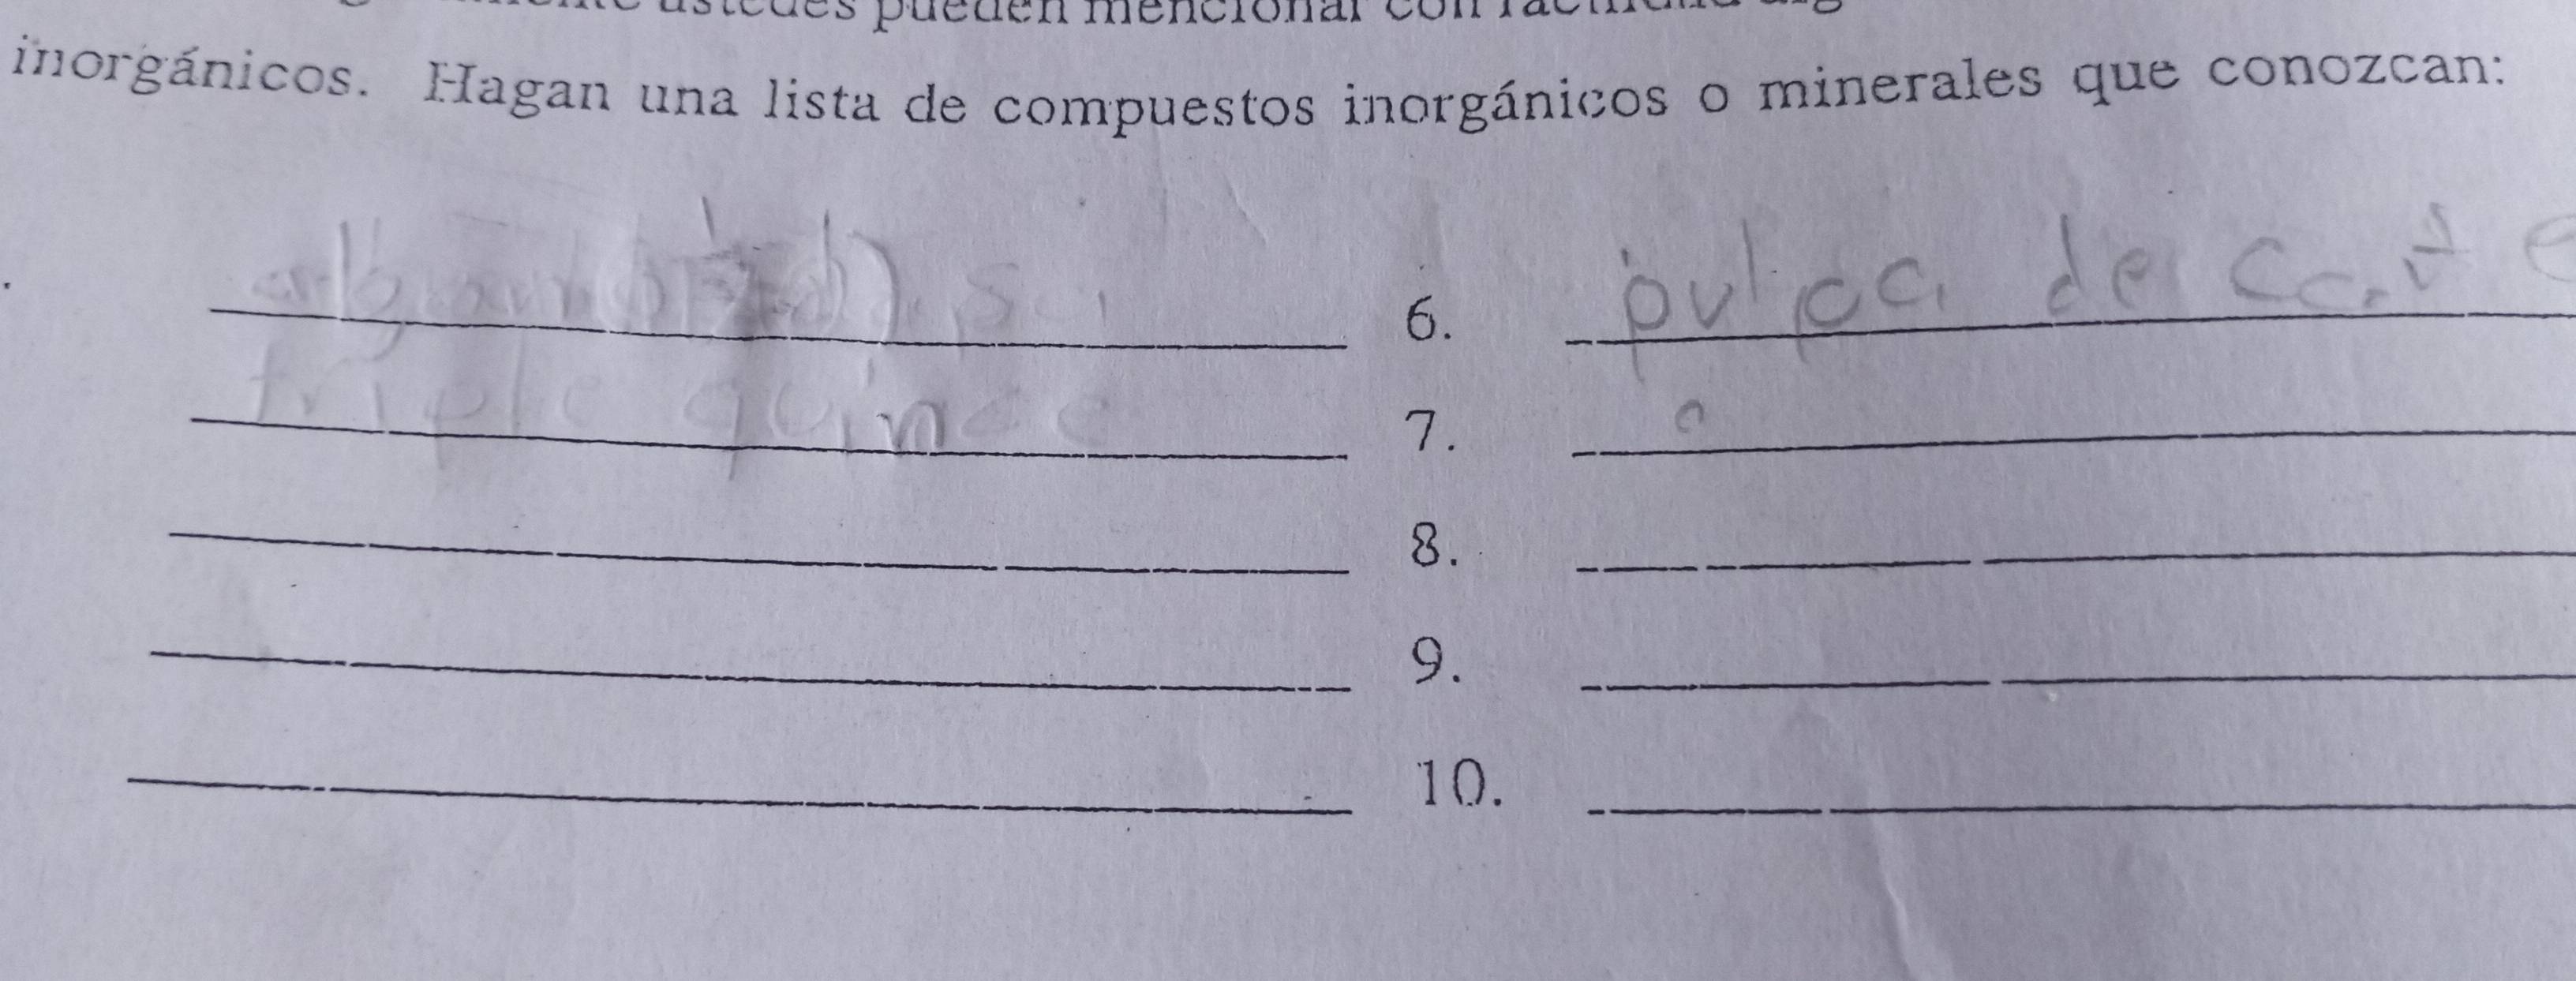 ustedes pueden mencionar con
inorgánicos. Hagan una lista de compuestos inorgánicos o minerales que conozcan:
6. pulpa de café
triple quince
7.
8.
9.
10.